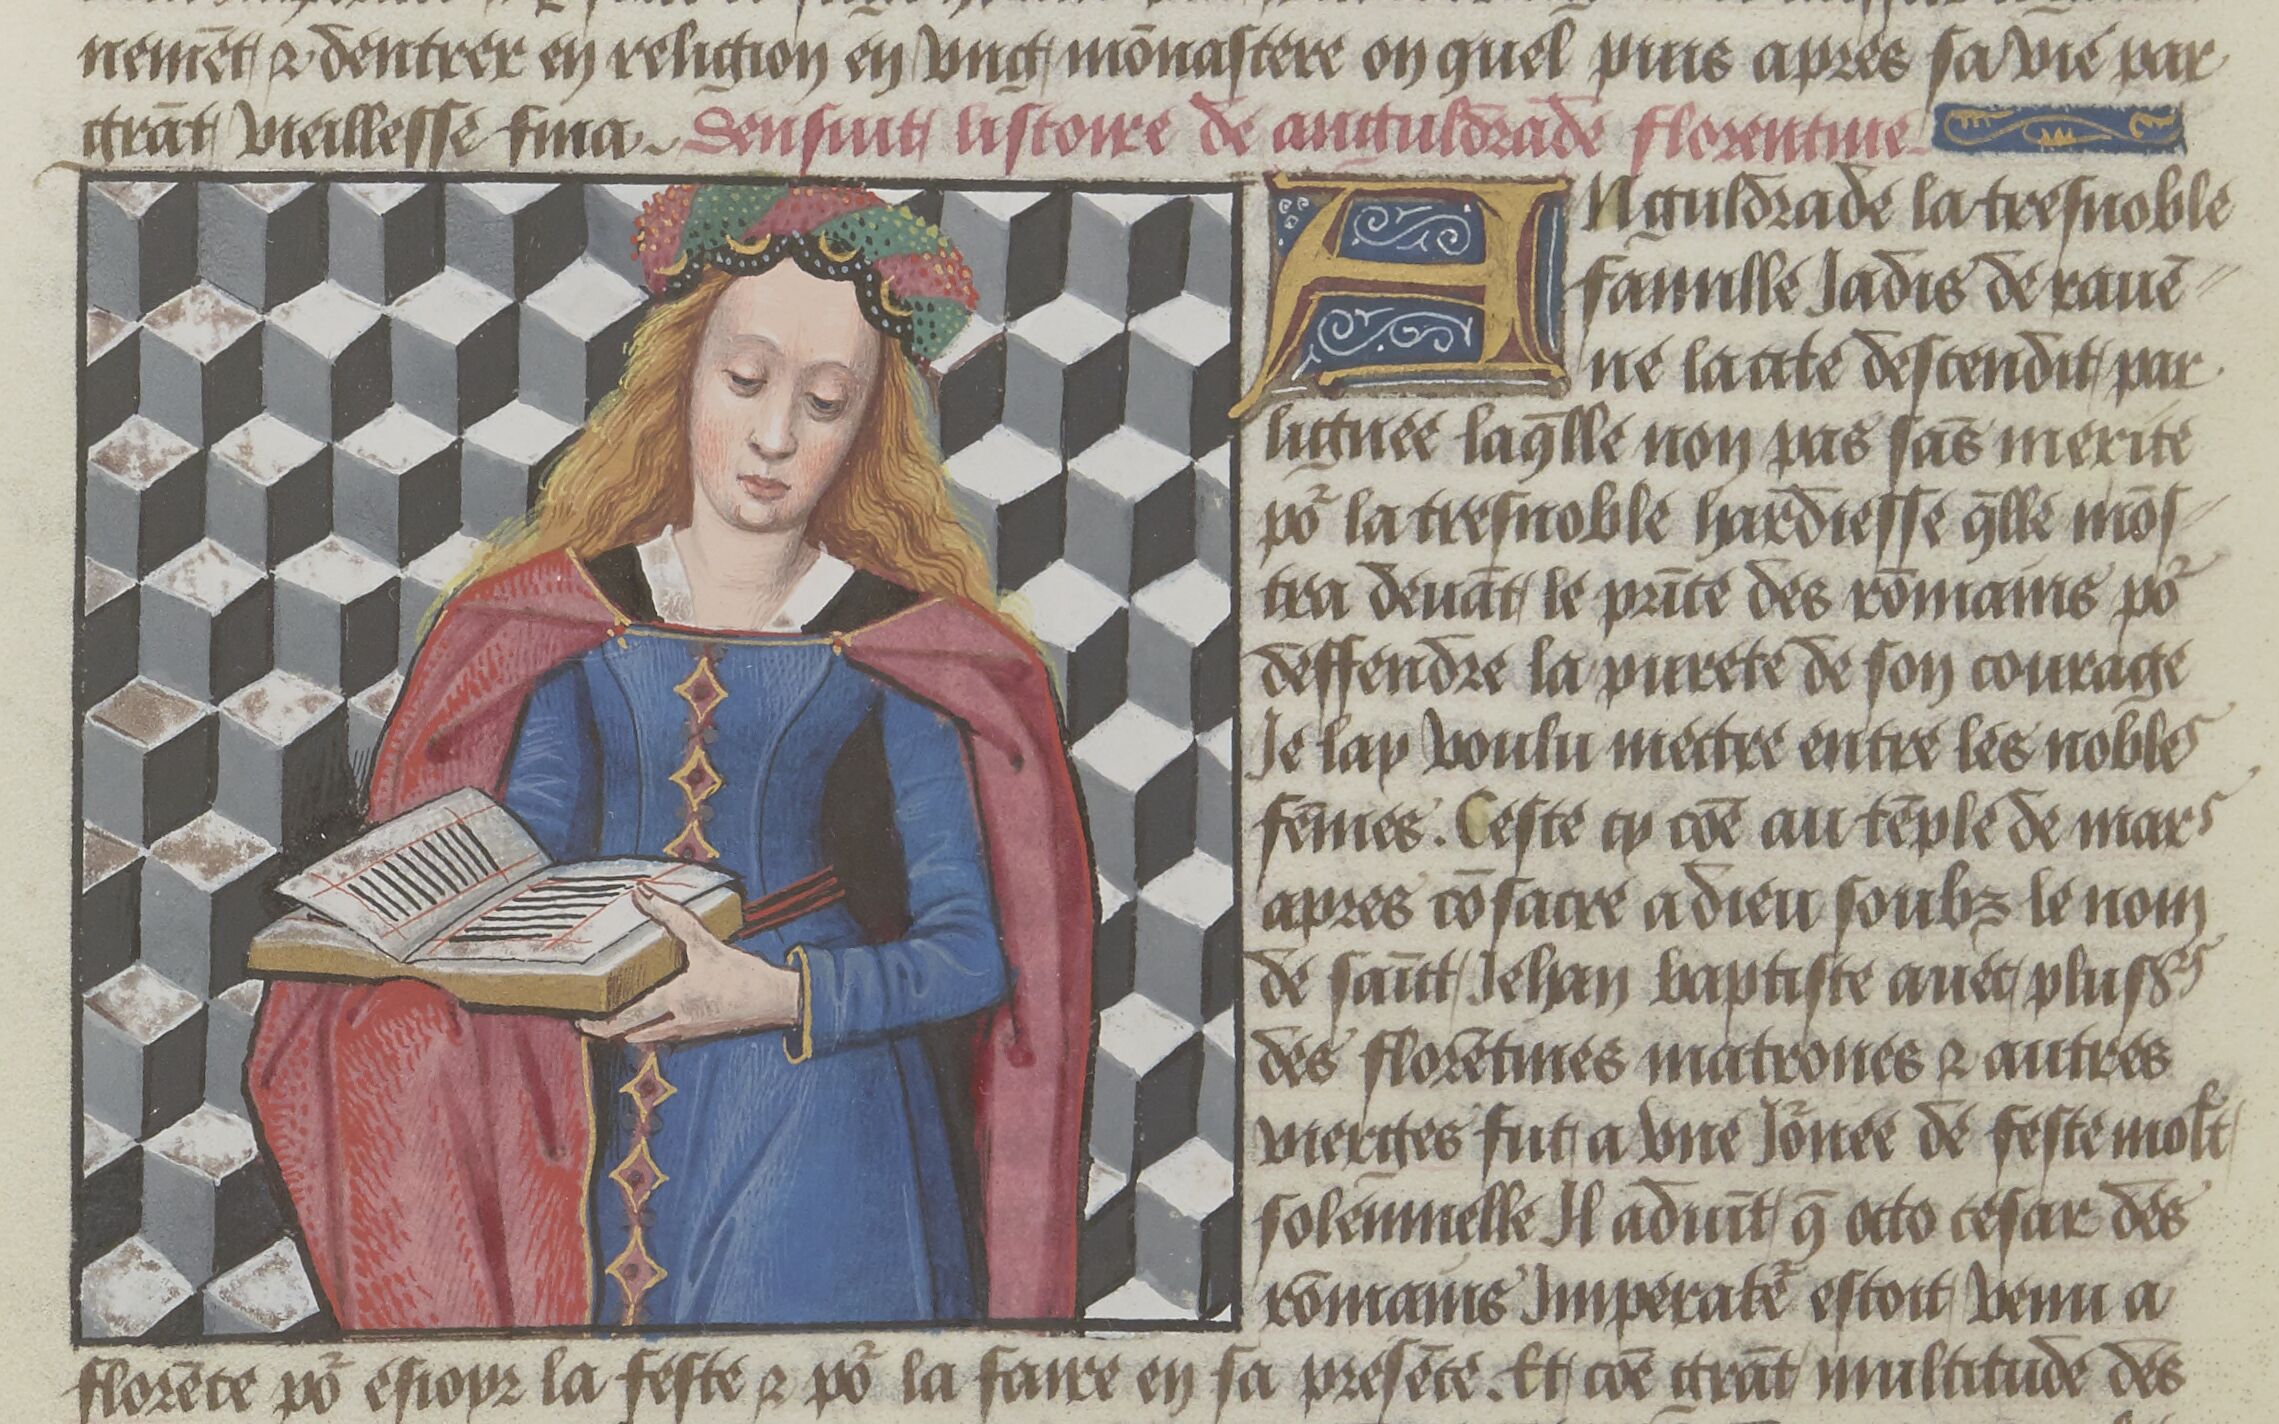 nemēt ⁊ dentrer en religion en vng mōnastere on quel puis apres sa vie par
grāt vieillesse fina. Sensuit listoire de anguldrade florentine
ANguldrade la tresnoble
famille Jadis de rauē
ne la cite descendit par
lignee laq̄lle non pas sās merite
po᷑ la tresnoble hardiesse q̄lle mōs
tra deuāt le prīce des rōmains po᷑
deffendre la purete de son courage
Je lay voulu mectre entre les nobles
fēmes. Ceste cy cōe au tēple de mars
apres cōsacre a dieu soubz le nom
de saīct Jehan baptiste auec plus͛s
des florētines matrones ⁊ autres
vierges fut a vne Jo᷑nee de feste molt
solennnelle Jl aduīt q̄ octo cesar des
rōmains Jmperate᷑ estoit venu a
florēce po᷑ esioyr la feste ⁊ po᷑ la faire en sa presēce. Et cōe grāt multitude des